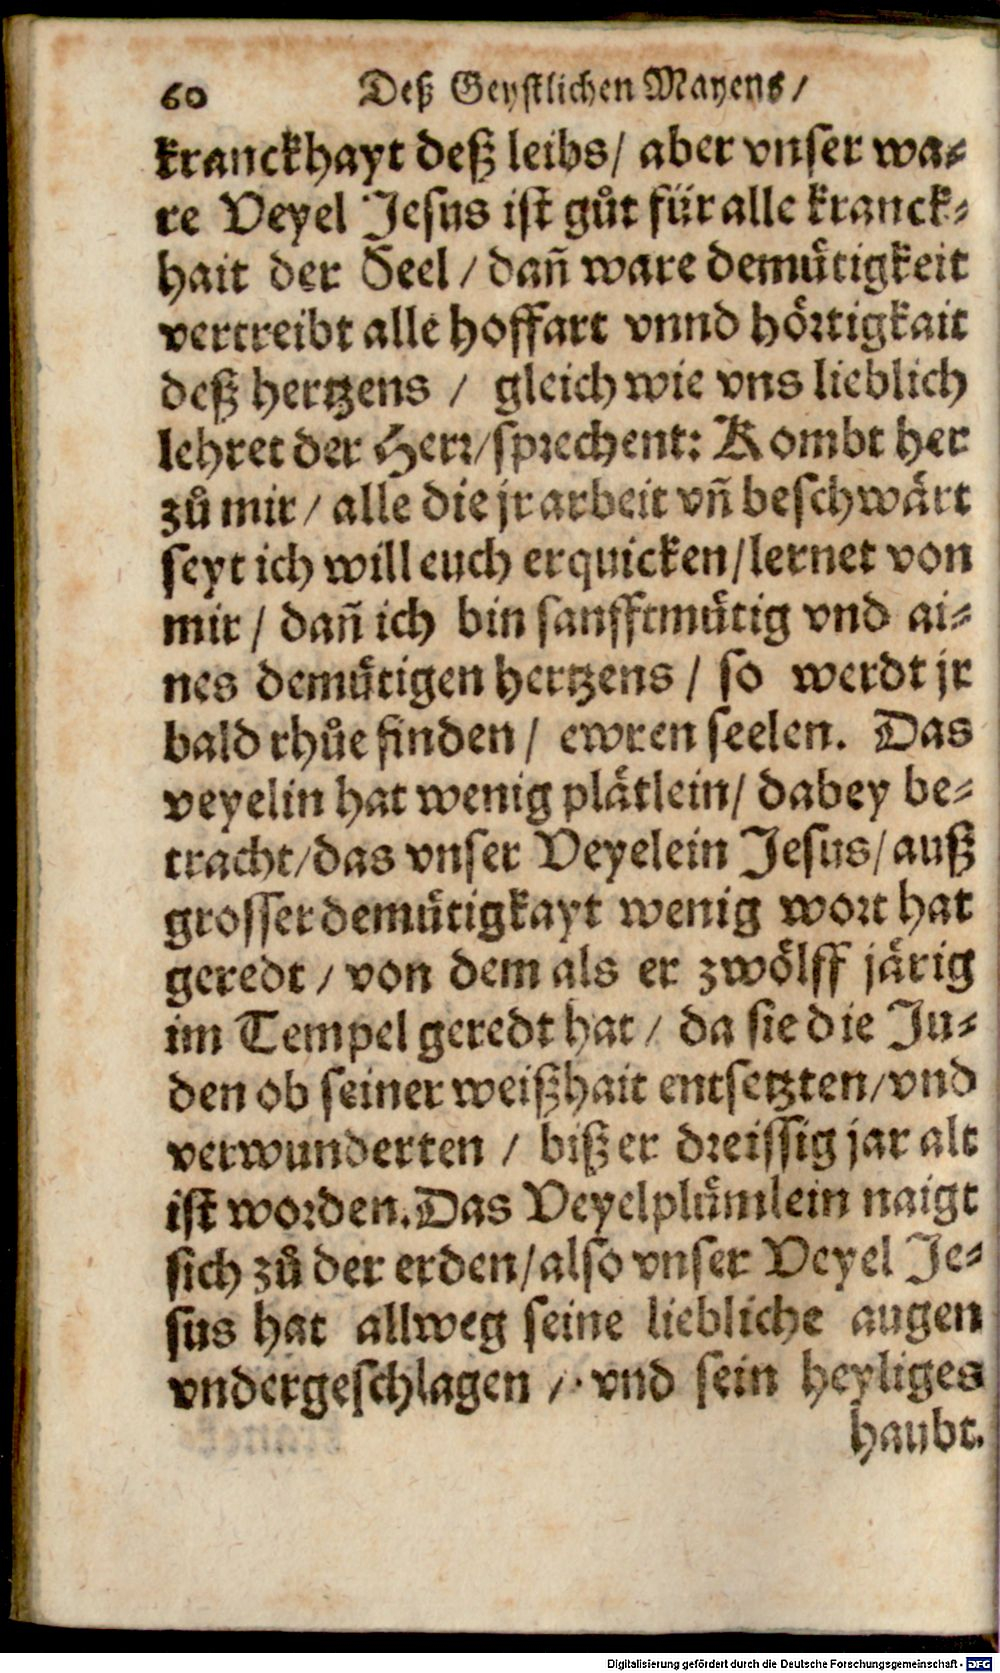 60 Deß Geystlichen Mayens/
kranckhayt deß leibs/ aber vnser wa⸗
re Veyel Jesus ist gůt für alle kranck⸗
hait der Seel / dañ ware demuͤtigkeit
vertreibt alle hoffart vnnd hoͤrtigkait
deß hertzens / gleich wie vns lieblich
lehret der Herr/sprechent: Kombt her
zů mir / alle die jr arbeit vñ beschwaͤrt
seyt ich will euch erquicken/lernet von
mir / dañ ich bin sanfftmuͤtig vnd ai⸗
nes demuͤtigen hertzens / so werdt jr
bald rhůe finden / ewren seelen. Das
veyelin hat wenig plaͤtlein/ dabey be⸗
tracht/das vnser Veyelein Jesus/ auß
grosser demuͤtigkayt wenig wort hat
geredt / von dem als er zwoͤlff jaͤrig
im Tempel geredt hat / da sie die Ju⸗
den ob seiner weißhait entsetzten/vnd
verwunderten / biß er dreissig jar alt
ist worden.Das Veyelpluͤmlein naigt
sich zů der erden/also vnser Veyel Je⸗
sus hat allweg seine liebliche augen
vndergeschlagen / vnd sein heyliges
haubt.
Digitalisierung gefördert durch die Deutsche Forschungsgemeinschaft - DFG